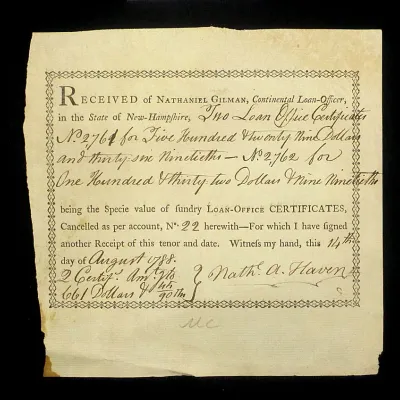 RECEIVED of NATHANIEL GILMAN, Continental Loan-Officer,
in the State of New-Hampshire, Two Loan Office Certificates
No 2,761 for Five Hundred & twenty Nine Dollars
and thirty one Ninetieths — No 2,762 for
One Hundred & thirty two Dollars & Nine Ninetieths
being the Specie value of sundry LOAN-OFFICE CERTIFICATES,
Cancelled as per account, No. 22 herewith—For which I have signed
another Receipt of this tenor and date. Witness my hand, this 14th
day of August 1788.
2 Certifs. Amts to
661 Dollars &
90ths
Nathl. A. Haven